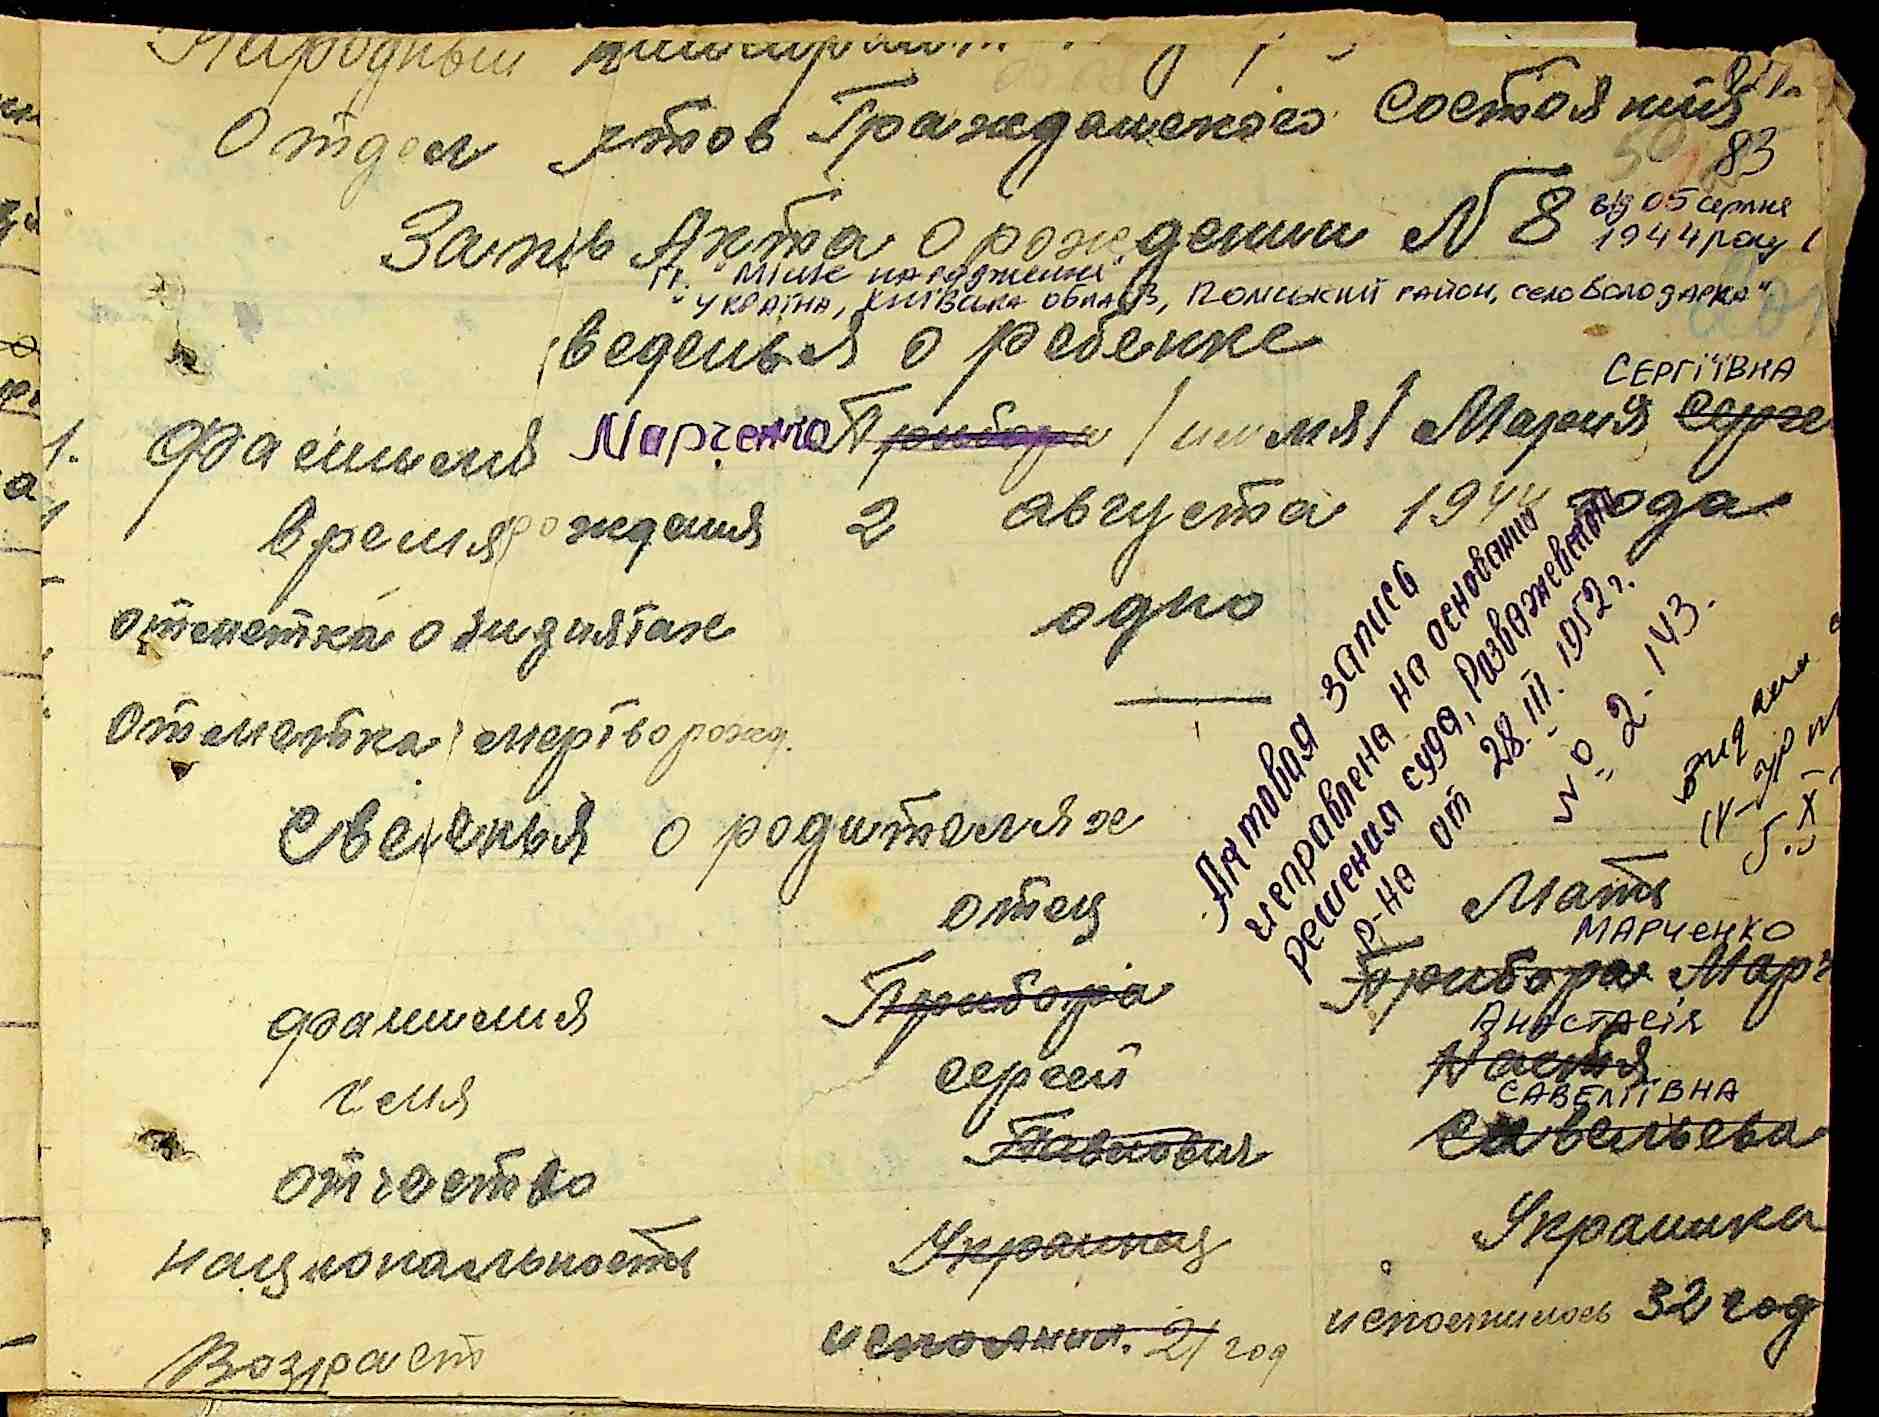 Народный
Отдел Актов Гражданского Состояния
83
Запись Акта о рождении N 8 від 05 серпня
1944 року
П. "Місце народження"
"Україна, Київська область, Поліський район, село Володарка"
Сведенья о ребенке
СЕРГІЇВНА
1. Фамилия Марченко Прибора /имя/ Мария Серге
время рождения 2 августа 1944 года
отметка о видиятах одно
Отметка мертворожд. —
Актовая запись
исправлена на основании
решения суда, Розважевского
р-на от 28.III.1952 г.
№ 2-143.
Сведенья о родителях
отец Мать
МАРЧЕНКО
фамилия Прибора Прибора Марч
Анастасія
Имя Сергей Настя
САВЕЛІЇВНА
отчество Павлович Савельева
национальность Украинец Украинка
Возраст исполнил. 21 год исполнилось 32 год